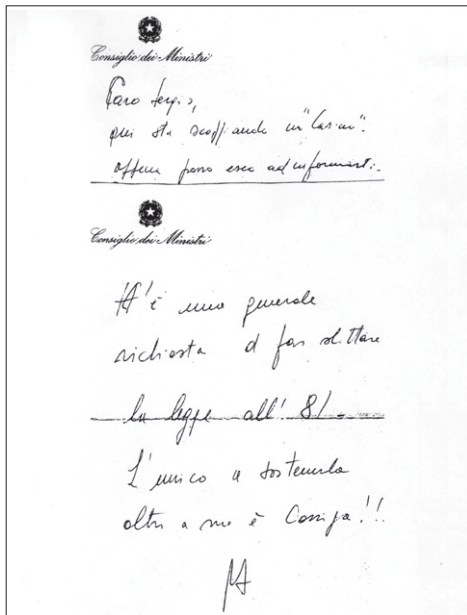 Consiglio dei Ministri
Caro Sergio,
qui sta scoppiando un "Casino".
appena posso esco ad informarti.
Consiglio dei Ministri
V'è una generale
richiesta di far slittare
la legge all' 81
L'unico a sostenerla
oltre a me è Cossiga!!